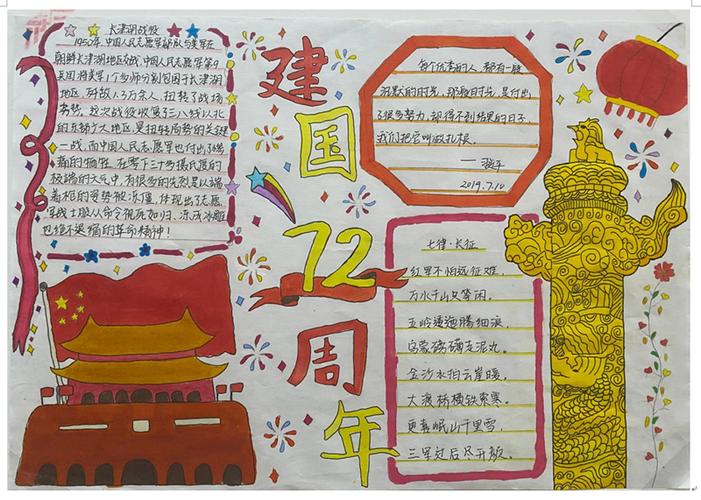 长津湖战役
1950年,中国人民志愿军部队与美军在
朝鲜长津湖地区交战,中国人民志愿军第9
兵团将美军1个多师分割包围于长津湖
地区,歼敌1.3万余人,扭转了战场
态势,这次战役收复了三八线以北
的东部广大地区,是扭转局势的关键
一战,而中国人民志愿军也付出
痛的牺牲,在零下三十多摄氏度的
极端的天气中,有很多的先烈是以端
着枪的姿势被冻僵,体现出了志愿
军战士服从命令视死如归,冻成冰雕
也绝不退缩的革命精神!
建国72周年
每个优秀的人,都有一段
沉默的时光,那段时光,是付出
了很多努力,却得不到结果的日子,
我们把它叫做扎根。
2019.7.10
七律·长征
红军不怕远征难,
万水千山只等闲。
五岭逶迤腾细浪,
乌蒙磅礴走泥丸。
金沙水拍云崖暖,
大渡桥横铁索寒。
更喜岷山千里雪,
三军过后尽开颜。